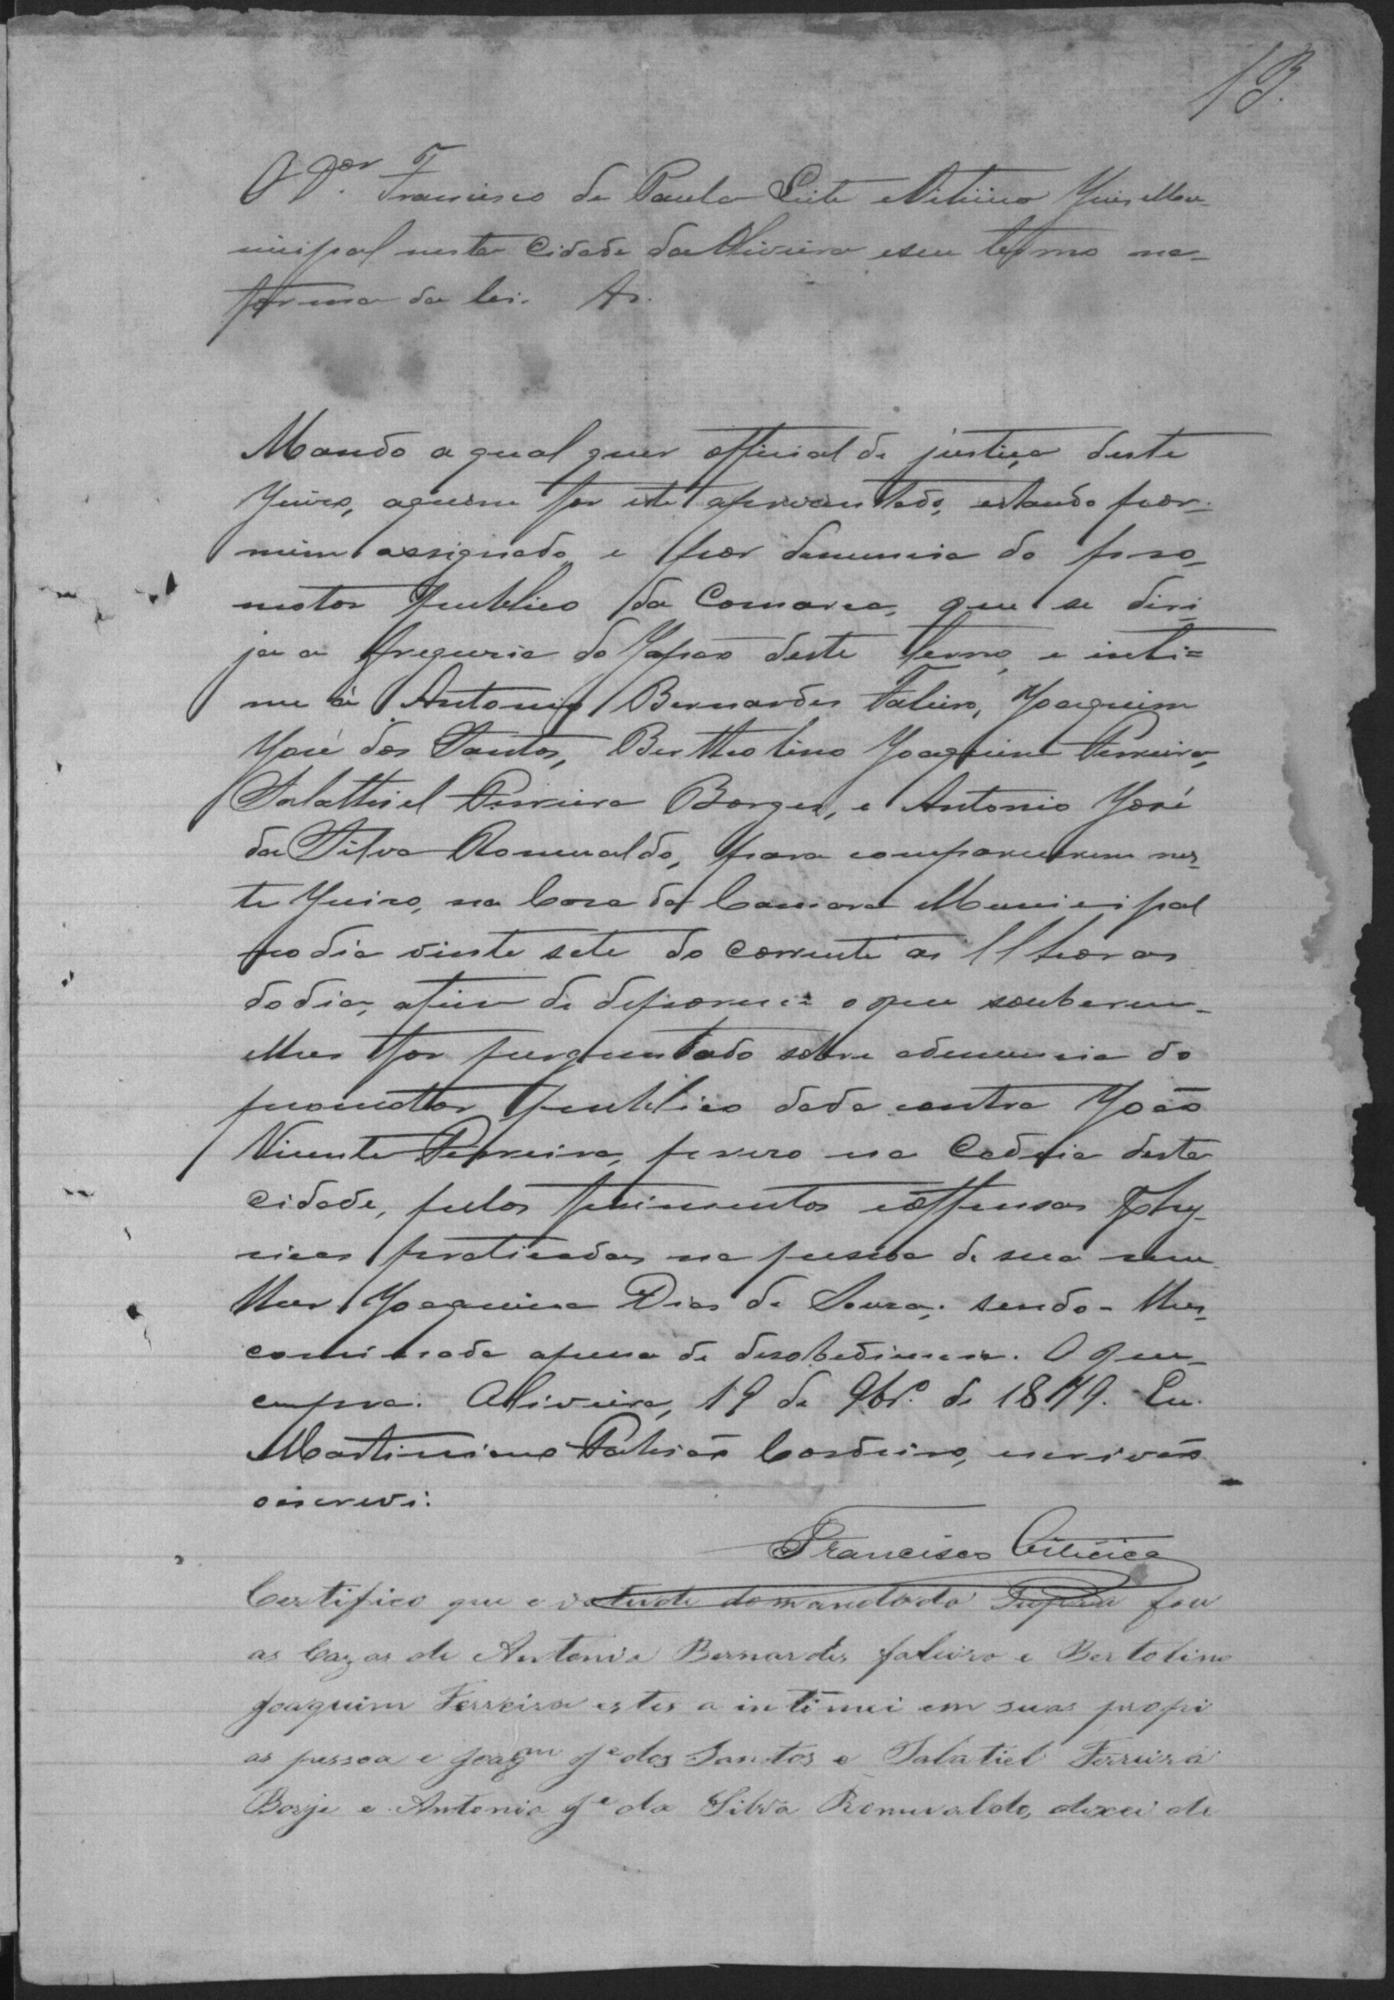 13.
O D.or Francisco de Paula Leite e Oiticica Juis Mu-
nicipal nesta Cidade da Oliveira e seu termo na
forma da lei. &.
Mando a qual quer official de justiça deste
Juizo, a quem for este aprezentado, estando por
mim assignado, e por denuncia do pro-
motor publico da Comarca, que se diri-
ja a freguezia do Japão deste termo, e inti-
me á Antonio Bernardes Faleiro, Joaquim
José dos Santos, Bertholino Joaquim Ferreira,
Salathiel Ferreira Borges, e Antonio José
da Silva Romualdo, para comparecerem nes-
te Juizo, na Casa da Camara Municipal
no dia vinte sete do corrente as 11 horas
do dia, afim de deporem o que souberem
e lhes for perguntado sobre a denuncia do
promotor publico dada contra João
Vicente Ferreira, prezo na Cadeia desta
cidade, pelos ferimentos e offensas phy-
sicas praticadas na pessoa de sua mu-
lher Joaquina Dias de Souza; sendo-lhes
cominada a pena de desobediencia. O que
cumpra. Oliveira, 19 de 9br.o de 1879. Eu
Martiniano Cordeiro, escrivão
o iscrevi.
Francisco Oiticica
Certifico que e vertude do mandado Supra fou
as Cazas de Antonio Bernardes faleiro e Bertolino
Joaquim Ferreira estes a intimei em suas propi
as pessoa e Joaqm Je dos Santos e Salatiel Ferreira
Borje e Antonio Je da Silva Romuvaldo, dexei de